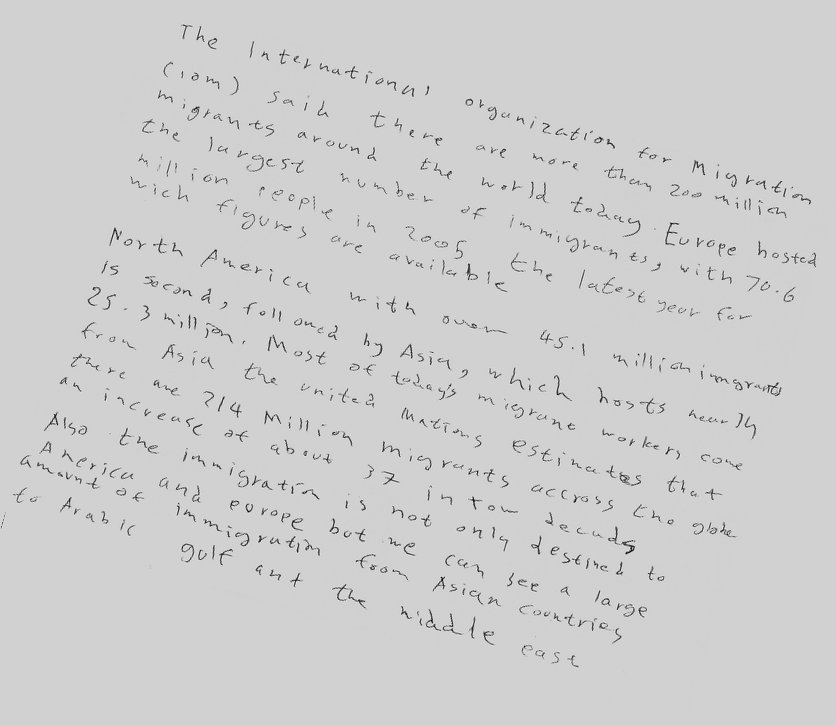 The International organization for Migration
(iom) said there are more than 200 million
migrants around the world today. Europe hosted
the largest number of immigrants, with 70.6
million people in 2005 the latest year for
wich figures are available
North America with over 45.1 million immigrants
is second, followed by Asia, which hosts nearly
25.3 million. Most of today's migrant workers come
from Asia the united Nations estimates that
there are 214 Million migrants accross the globe
an increase of about 37 in tow decads
Also the immigration is not only destined to
America and europe but we can see a large
amount of immigration from Asian countries
to Arabic gulf and the middle east